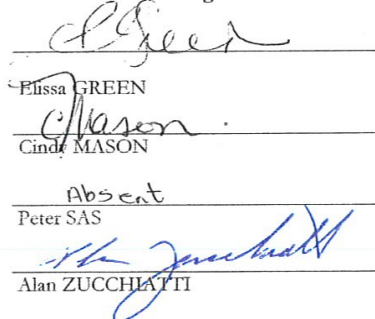 E Green
Elissa GREEN
CMason.
Cindy MASON
Absent
Peter SAS
Alan Zucchiatti
Alan ZUCCHIATTI